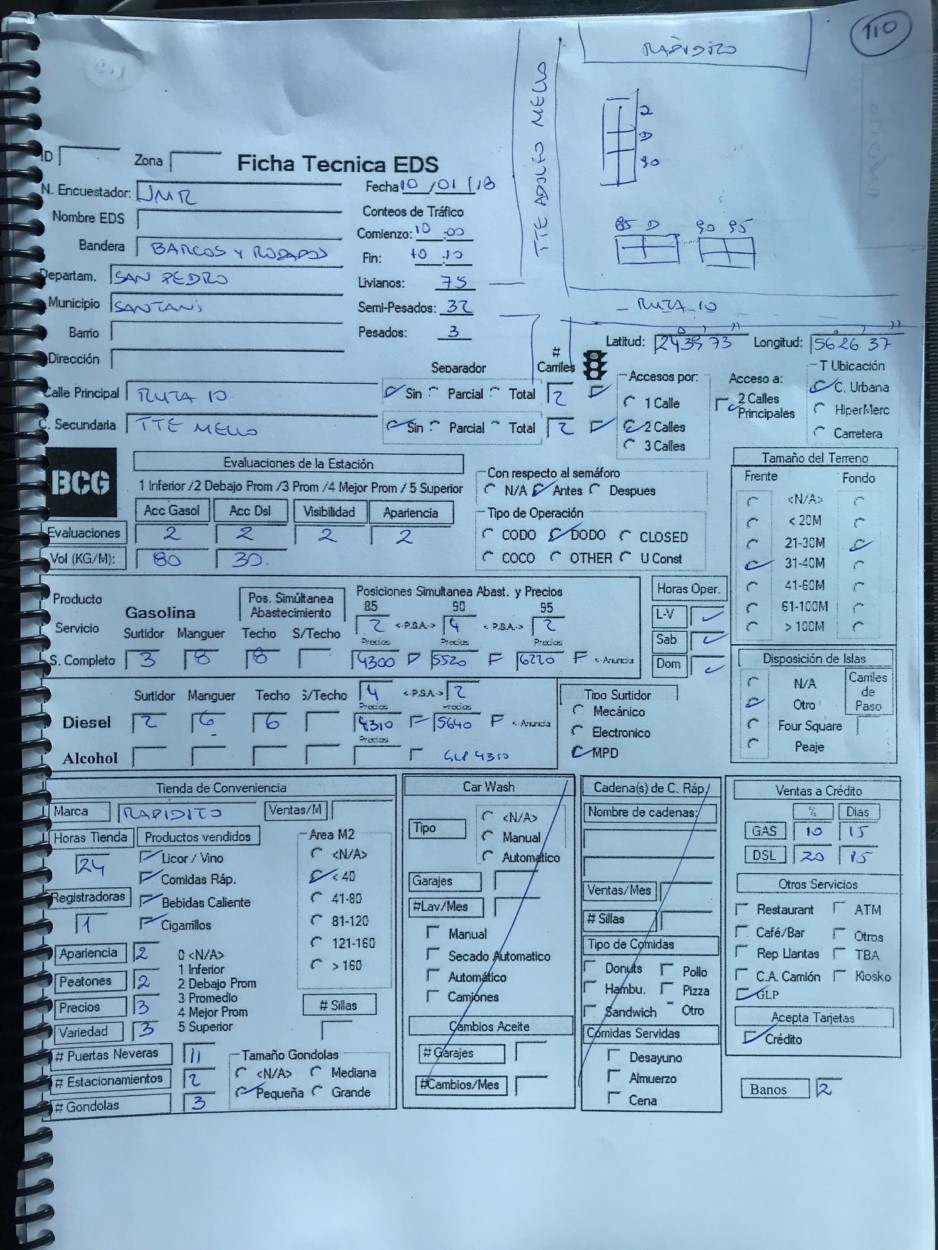 110
RAPIDITO
TTE ADOLFO MELLO
2
D
90
85 D 90 95
RUTA 10
ID Zona Ficha Tecnica EDS
N. Encuestador: JMR Fecha 10 /01 /18
Nombre EDS Conteos de Tráfico
Bandera BARCOS Y RODADOS Comienzo: 10 :00
Fin: 10 :10
Departam. SAN PEDRO Livianos: 75
Municipio SANTANI Semi-Pesados: 32
Barrio Pesados: 3
Dirección
Latitud: Longitud: 56 26 37
Separador # Carriles
Calle Principal RUTA 10 Sin Parcial Total 2
C. Secundaria TTE MELLO Sin Parcial Total 2
Accesos por:
1 Calle
2 Calles
3 Calles
Acceso a:
2 Calles Principales
T Ubicación
C. Urbana
HiperMerc
Carretera
BCG
Evaluaciones de la Estación
1 Inferior /2 Debajo Prom /3 Prom /4 Mejor Prom / 5 Superior
Acc Gasol Acc Dsl Visibilidad Apariencia
Evaluaciones 2 2 2 2
Vol (KG/M): 80 30.
Con respecto al semáforo
N/A Antes Despues
Tipo de Operación
CODO DODO CLOSED
COCO OTHER U Const
Tamaño del Terreno
Frente Fondo
<N/A>
< 20M
21-30M
31-40M
41-60M
61-100M
> 100M
Producto
Servicio Gasolina
Pos. Simúltanea Abastecimiento
Posiciones Simultanea Abast. y Precios
85 90 95
2 <-P.S.A.-> 4 <-P.S.A.-> 2
Surtidor Manguer Techo S/Techo Precios Precios Precios
S. Completo 3 8 8 4300 5520 6220 <-Anuncia
Horas Oper.
L-V
Sab
Dom
Surtidor Manguer Techo S/Techo 4 <-P.S.A.-> 2
Precios Precios
Diesel 2 6 6 4310 5640 <-Anuncia
Precios
Alcohol GLP 4310
Tipo Surtidor
Mecánico
Electronico
MPD
Disposición de Islas
N/A
Otro
Four Square
Peaje
Carriles de Paso
Tienda de Conveniencia
Marca RAPIDITO Ventas/M
Horas Tienda Productos vendidos
24
Licor / Vino
Comidas Ráp.
Registradoras Bebidas Caliente
1 Cigarrillos
Area M2
<N/A>
< 40
41-80
81-120
121-160
> 160
Apariencia 2
Peatones 2
Precios 3
Variedad 3
0 <N/A>
1 Inferior
2 Debajo Prom
3 Promedio
4 Mejor Prom
5 Superior
# Sillas
# Puertas Neveras 11
# Estacionamientos 2
# Gondolas 3
Tamaño Gondolas
<N/A> Mediana
Pequeña Grande
Car Wash
Tipo
<N/A>
Manual
Automatico
Garajes
#Lav/Mes
Manual
Secado Automatico
Automático
Camiones
Cambios Aceite
# Garajes
#Cambios/Mes
Cadena(s) de C. Ráp.
Nombre de cadenas:
Ventas/Mes
# Sillas
Tipo de Comidas
Donuts Pollo
Hambu. Pizza
Sandwich Otro
Comidas Servidas
Desayuno
Almuerzo
Cena
Ventas a Crédito
% Dias
GAS 10 15
DSL 20 15
Otros Servicios
Restaurant ATM
Café/Bar Otros
Rep Llantas TBA
C.A. Camión Kiosko
GLP
Acepta Tarjetas
Crédito
Banos 2